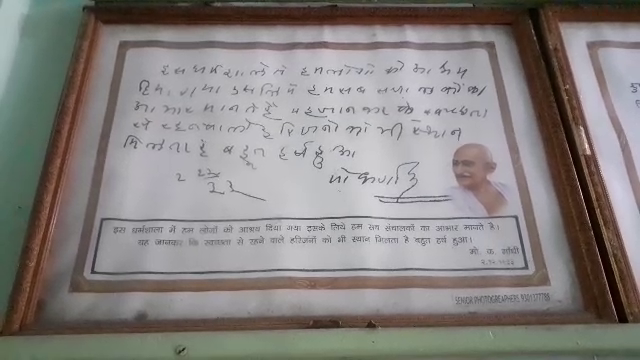 इस धर्मशाले में हम लोगों को आश्रय
दिया गया इसलिये हम सब संचालकों का
आभार मानते हैं यह जानकर के स्वच्छता
से रहनेवाले हरिजनों को भी स्थान
मिलता है बहुत हर्ष हुआ
मो क गांधी
इस धर्मशाला में हम लोगों को आश्रय दिया गया इसके लिये हम सब संचालकों का आभार मानते है।
यह जानकर कि स्वच्छता से रहने वाले हरिजनों को भी स्थान मिलता है बहुत हर्ष हुआ।
मो. क. गाँधी
SENIOR PHOTOGREAPHERS 9301377788